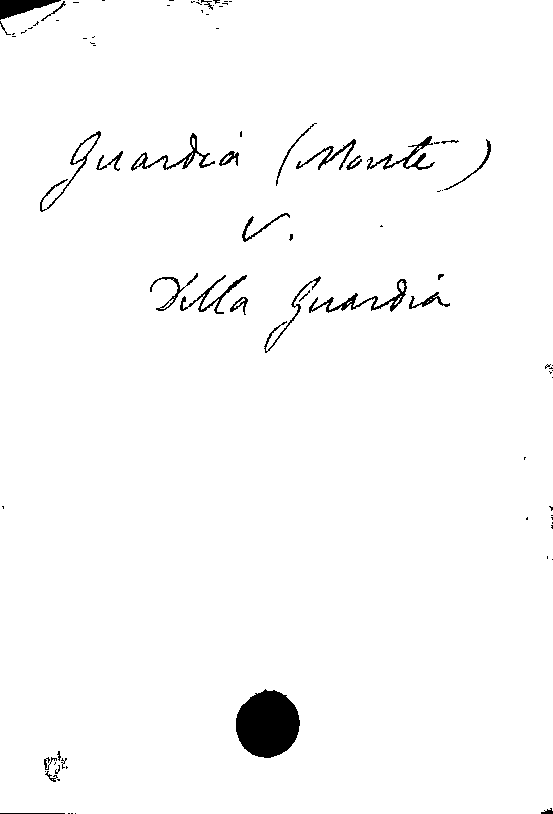 Guardia (Monte)
v.
Della Guardia